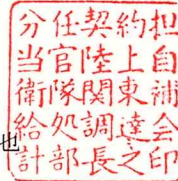 分任契約担
当官陸上自
衛隊関東補
給処調達会
計部長之印
也